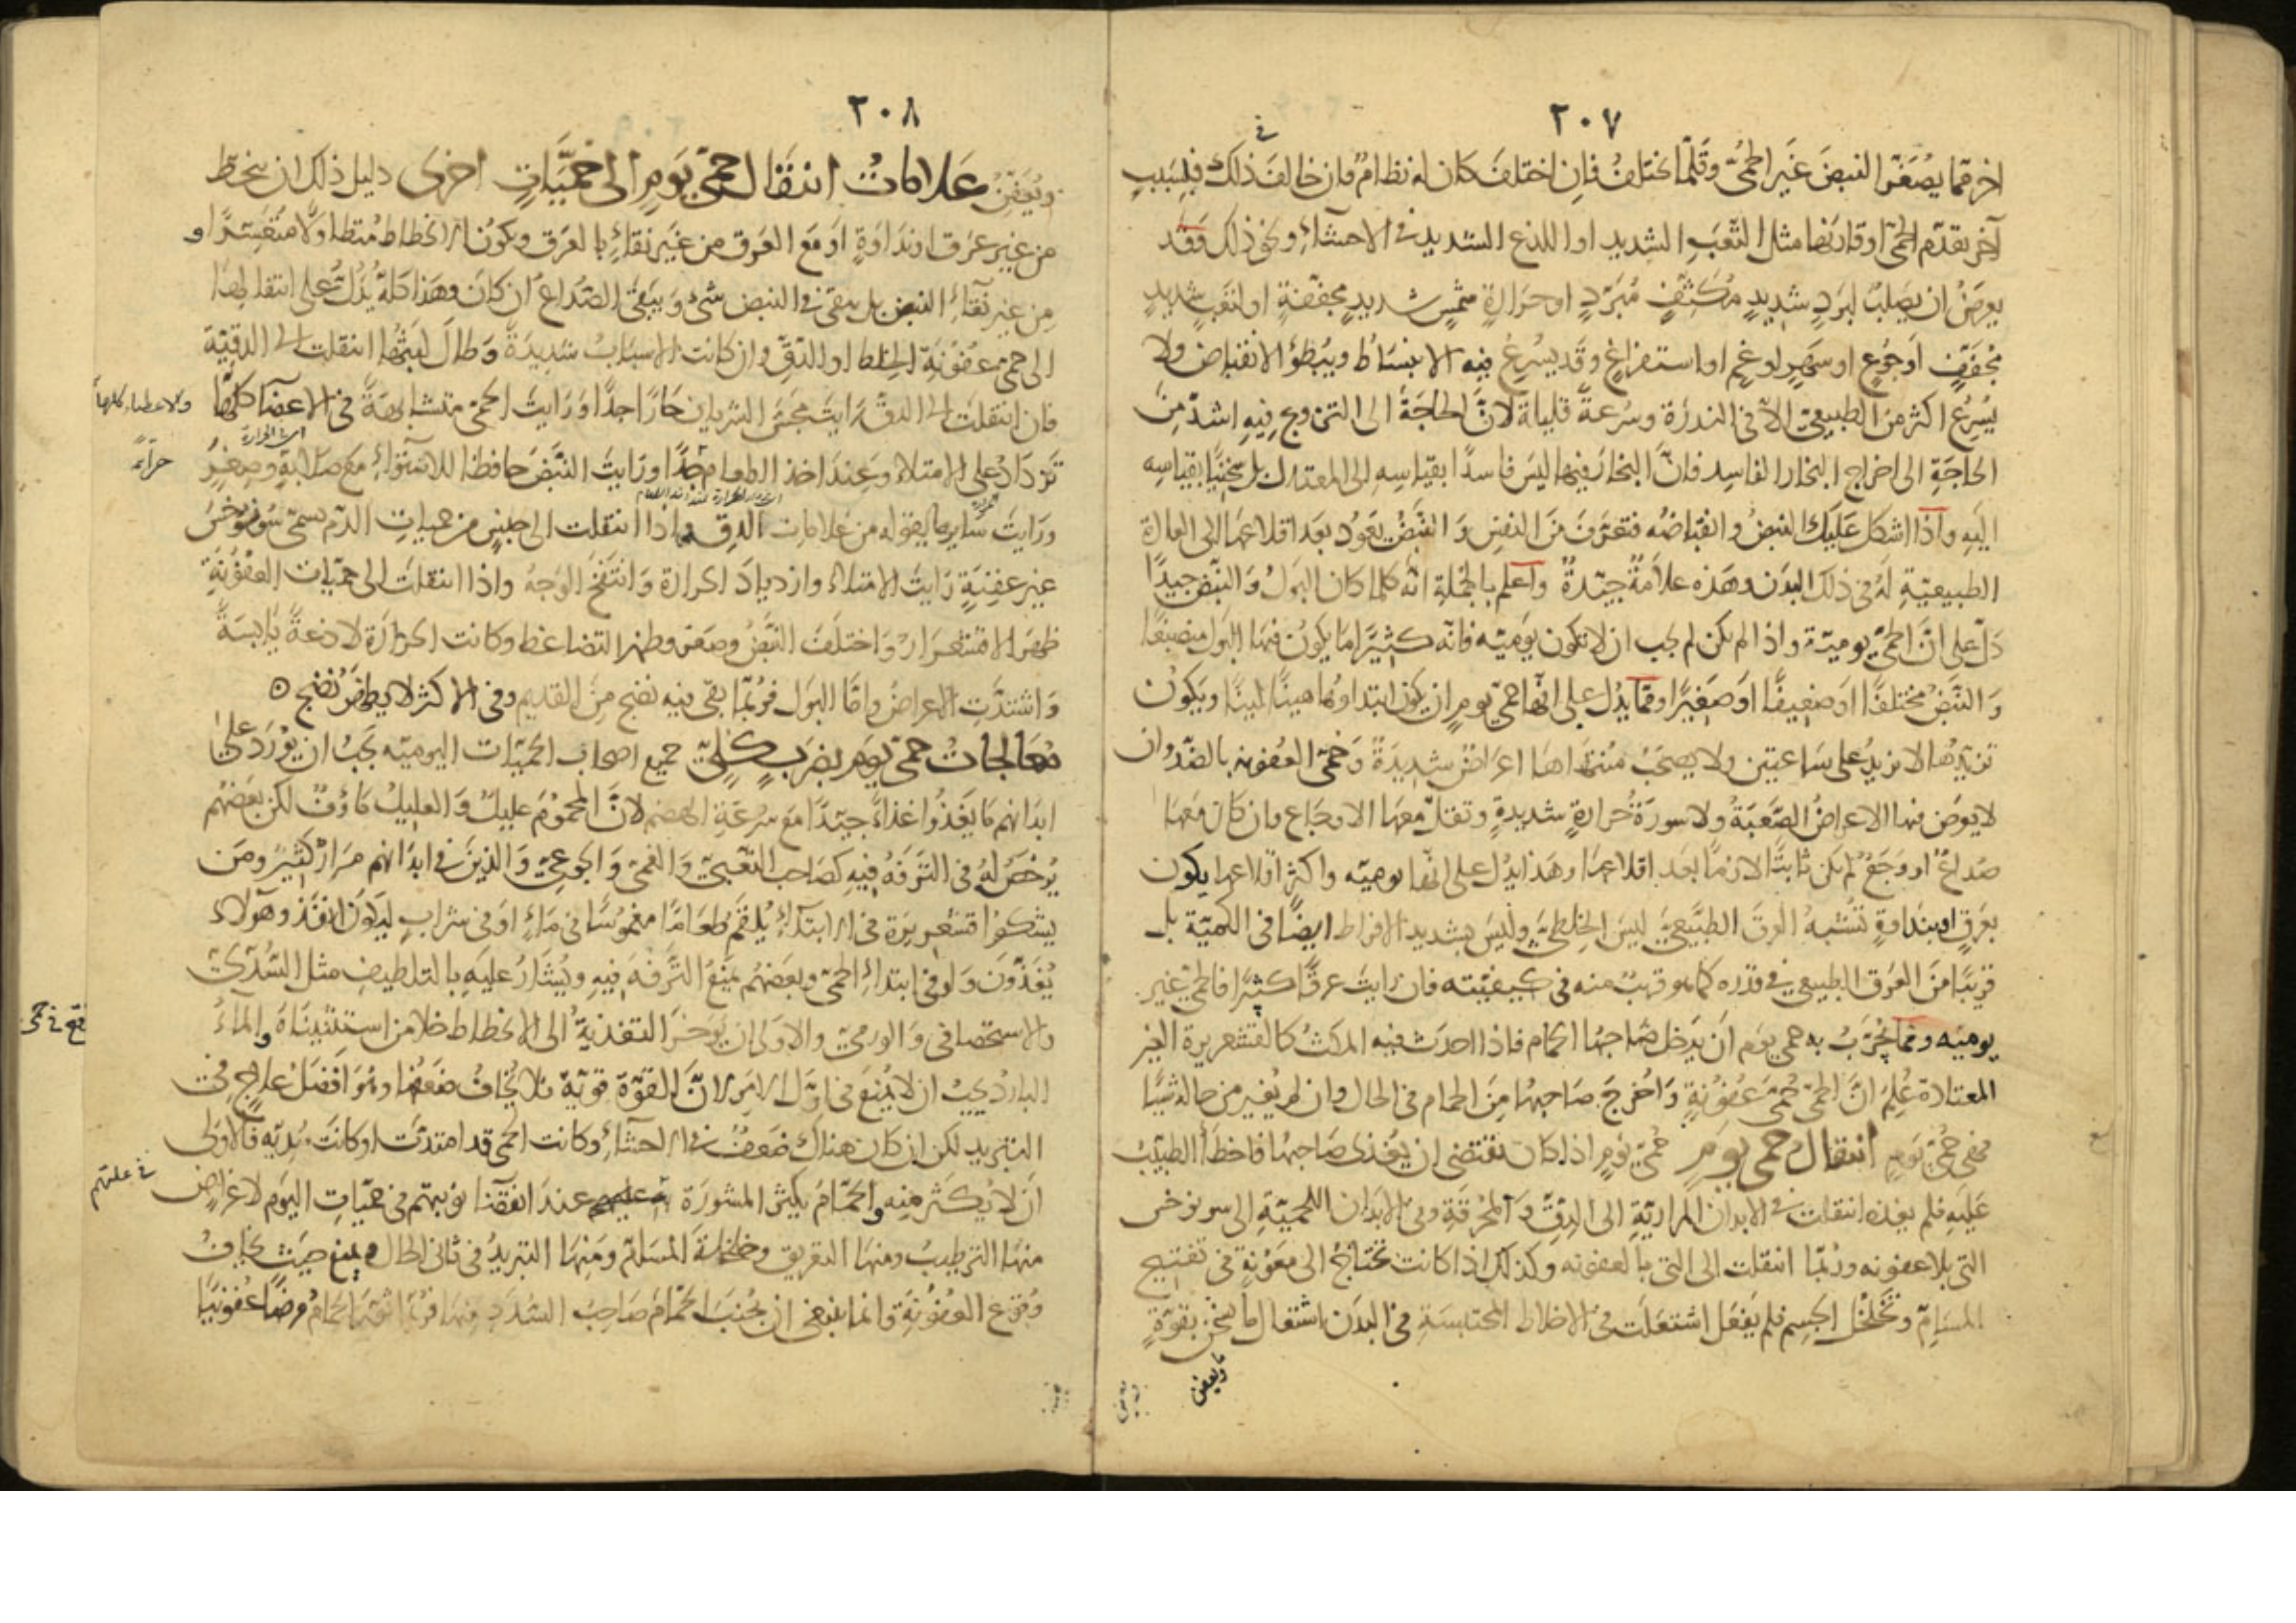 ٢٠٧
اخر مما يصغر النبض غير الحمى وقلما يختلف فان اختلف كان له نظام وان خالف في ذلك فلسبب
آخر تقدم الحمى او قارنها مثل التعب الشديد او اللذع الشديد في الاحشاء ونحو ذلك وقد
يعرض ان يصلب لبرد شديد مكثف مبرد او حرارة شمس شديد مجففة او لتعب شديد
مجفف او جوع او سهر او غم او استفراغ وقد يسرع فيه الانبساط ويبطؤ الانقباض ولا
يسرع اكثر من الطبيعي الا في الندرة وسرعة قليلة لان الحاجة الى الترويح فيه اشد من
الحاجة الى اخراج البخار الفاسد فان البخار فيها ليس فاسدا بقياسه الى المعتدل بل سخينا بقياسه
اليه واذا اشكل عليك النبض وانقباضه فتعرف من النفس والنبض يعود بعد اقلاعها الى العادة
الطبيعية له في ذلك البدن وهذه علامة جيدة واعلم بالجملة انه كلما كان البول والنبض جيدا
دل على ان الحمى يومية واذا لم يكن لم يجب ان لا تكون يوميه فانه كثيرا ما يكون فيها البول منصبغا
والنبض مختلفا او ضعيفا او صغيرا ومما يدل على انها حمى يوم ان يكون ابتداوها هينا لينا ويكون
تزيدها لا يزيد على ساعتين ولا يصحب منتهاها اعراض شديدة وحمى العفونه بالضد وان
لا يعرض فيها الاعراض الصعبة ولا سورة حرارة شديدة وتقل معها الاوجاع وان كان معها
صداع او وجع لم يكن ثابتا لازما بعد اقلاعها وهذا يدل على انها يوميه واكثر اقلاعها يكون
بعرق او بنداوة تشبه العرق الطبيعي ليس الخلطي وليس بشديد الافراط ايضا في الكمية بل
قريبا من العرق الطبيعي في قدره كما هو قريب منه في كيفيته فان رايت عرقا كثيرا فالحمى غير
يوميه ومما يجرب به حمى يوم ان يدخل صاحبها الحمام فاذا احدث فيه المكث كالقشعريرة الغير
المعتادة علم ان الحمى حمى عفونة واخرج صاحبها من الحمام في الحال وان لم يغير من حاله شيئا
فهي حمى يوم انتقال حمى يوم حمى يوم اذا كان تقتضى ان يغذى صاحبها فاخطأ الطبيب
عليه فلم يغذه انتقلت في الابدان المرارية الى الدق والمحرقة وفي الابدان اللحمية الى سونوخس
التي بلا عفونه وربما انتقلت الى التي بالعفونه وكذلك اذا كانت تحتاج الى معونة في تفتيح
المسام وتخلخل الجسم فلم يفعل اشتعلت في الاخلاط المحتبسة في البدن اشتعال ما يسخن بقوة
ويعفن
٢٠٨
ويعفن علامات انتقال حمى يوم الى حميات اخرى دليل ذلك ان ينحط
من غير عرق او نداوة او مع العرق من غير نقاء بالعرق ويكون الانحطاط متطاولا متعسرا و
من غير نقاء النبض بل يبقى في النبض شئ ويبقى الصداع ان كان وهذا كله يدل على انتقالها
الى حمى عفونة الخلط او الدق وان كانت الاسباب شديدة وطال لبثها انتقلت الى الدقية
فان انتقلت الى الدق رايت مجس الشريان حارا جدا ورايت الحمى متشابهة في الاعضا كلها
تزداد على الامتلاء وعند اخذ الطعام جدا ورايت النبض حافظا للاستواء مع صلابة وصغر
ورايت ساير ما يقوله من علامات الدق واذا انتقلت الى جنس من حميات الدم يسمى سونوخس
غير عفنية رايت الامتلاء وازدياد الحرارة وانتفخ الوجه واذا انتقلت الى حميات العفونة
ظهر الاقشعرار واختلف النبض وصغر وظهر التضاغط وكانت الحرارة لاذعة يابسة
واشتدت الاعراض واما البول فربما بقى فيه نضج من القديم وفي الاكثر لا يظهر نضج
معالجات حمى يوم بضرب كلي جميع اصحاب الحميات اليوميه يجب ان يورد على
ابدانهم ما يغذوا غذاء جيدا مع سرعة الهضم لان المحموم عليل والعليل ماؤف لكن بعضهم
يرخص له في الترفه فيه كصاحب التعبي والغمي والجوعي والذين في ابدانهم مرار كثير ومن
يشكوا قشعريرة في الابتداء يلقم طعاما مغموسا في ماء او في شراب ليكون انفذ وهولاء
يغذون ولو في ابتداء الحمى وبعضهم يمنع الترفه فيه ويشار عليه بالتلطيف مثل السددي
والاستحصافي والورمي والاولى ان يوخر التغذية الى الانحطاط خلا من استثنيناه والماء
البارد يجب ان لا يمنع في اول الامر لان القوة قوية فلا يخاف ضعفها وهو افضل علاج في
التبريد لكن ان كان هناك ضعف في الاحشاء وكانت الحمى قد امتدت او كانت سديه فالاولى
ان لا يكثر منه والحمام يكثر المشورة عليهم عند انقضا نوبتهم في حميات اليوم لاغراض
منها الترطيب ومنها التعريق وخلخلة المسام ومنها التبريد في ثاني الحال ويمنع حيث يخاف
وقوع العفونة وانما ينبغي ان يجنب الحمام صاحب السدد منها فربما اثور الحمام مرضا عفونيا
ولاعضاء كلها
حراء
في علتهم